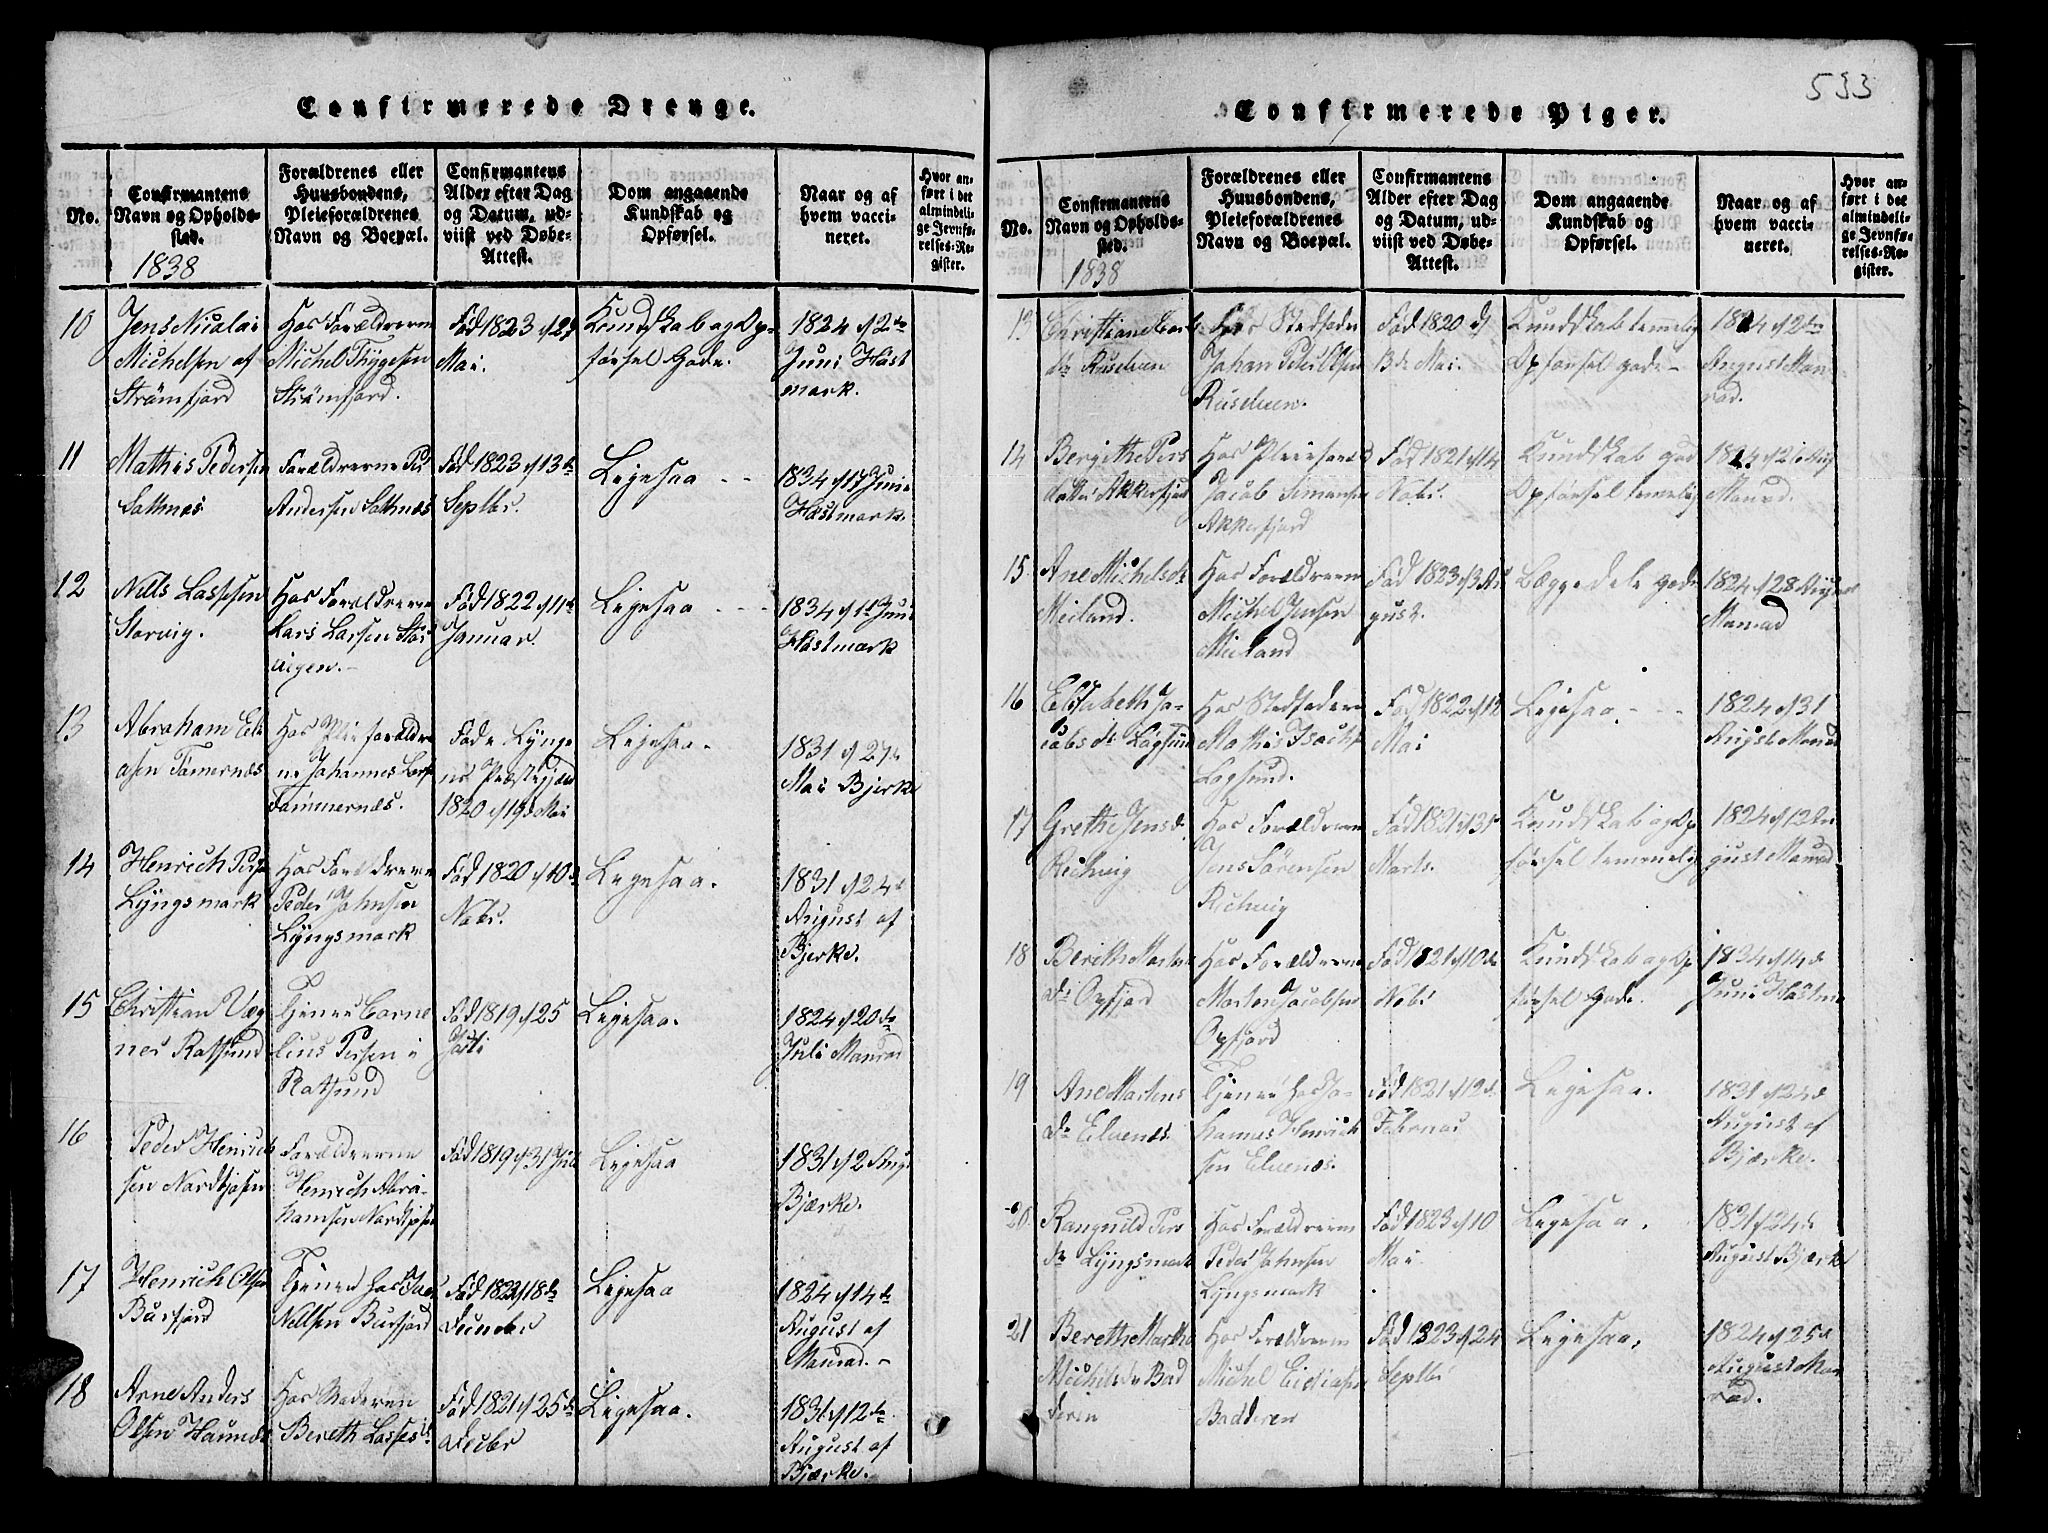 533
Confirmerede Drenge.
No.
Confirmantens
Navn og Opholds-
sted.
1838
Forældrenes eller
Huusbondens,
Pleieforældrenes
Navn og Boepæl.
Confirmantens
Alder efter Dag
og Datum, ud-
viist ved Døbe-
Attest.
Dom angaaende
Kundskab og
Opførsel.
Naar og af
hvem vacci-
neret.
Hvor an-
ført i det
almindeli-
ge Jevnfø-
relses-Re-
gister.
10
Jens Nicolai
Michelsen af
Strømfjord
Hos Forældrerne
Michel Thygesen
Strømfjord.
Fød 1823
Mai.
Kundskab og Op-
førsel Gode.
1824 d 2de
Juni Hast
mark.
11
Mathis Pedersen
Forældrerne
Andersen
Fød 1823 d 13de
Septbr.
Ligesaa - -
1834 d 14 Juni
Hastmark.
12
Nills Lassesen
Storvig.
Hos Forældrerne
Lars Larsen Stor
vigen.-
Fød 1822 d 11te
Januar.
Ligesaa - - -
1834 d 1te Juni
Hastmark
13
Abraham Eli
asen Tømernæs
Hos Pleieforældre
ne Johannes
Tømmernæs.
Fød i Lynge
ns Præstegjæld
1820 d 19de Mai
Ligesaa.
1831 d 27de
Mai Bjerke
14
Henrich
Lyngsmark
Hos Forældrerne
Peder Johnsen
Lyngsmark
Fød 1820 d 10de
Nobr.
Ligesaa.
1831 d 24de
August af
Bjerke.
15
Christian Væg
ner Ratsund
Tjener Corne
lius Persen i
Ratsund
Fød 1819 d 25
Juli
Ligesaa.
1824 d 20de
Juli Manrad
16
Peder Henrich
sen
Forældrerne
Henrich Abra-
hamsen
Fød 1819 d 31 Juli
Ligesaa
1831 d 2 Aug.
Bjærke.
17
Henrich Olsen
Burfjord
Tjener hos
Nillsen Burfjord
Ligesaa
1824 d 14de
August af
Manrad.-
18
Arne Anders
Olsen Havnnæs
Hos Moderen
Bereth Lasses dr
Fød 1821 d 25de
Decbr
Ligesaa.
1831 d 12de
August af
Bjærke.
Confirmerede Piger.
No.
Confirmantens
Navn og Opholds-
sted.
1838
Forældrenes eller
Huusbondens,
Pleieforældrenes
Navn og Boepæl.
Confirmantens
Alder efter Dag
og Datum, ud-
viist ved Døbe-
Attest.
Dom angaaende
Kundskab og
Opførsel.
Naar og af
hvem vacci-
neret.
Hvor an-
ført i det
almindeli-
ge Jevnfø-
relses-Re-
gister.
13
Hos Stedfader
Johan Peter Olsen
Fød 1820 d
3de Mai.
Kundskab temelig
Opførsel gode -
1824 d 2de
August Man
rad.
14
Bergithe Pers
datter Akkerfjord
Hos
Jacob Simonsen
Akkerfjord
Fød 1821 d 14
Nobr.
Kundskab god
Opførsel temelig
Manrad.
15
Ane Michels dr
Meiland.
Hos Forældrerne
Michel Jensen
Meiland
Fød 1823 d 3 Au
gust.
Begge dele gode
1824 d 28 August
Manrad
16
Elisabeth Ja-
cobs dr Løgsund
Hos Stedfader
Mathis
Løgsund.
Fød 1822 d 12
Mai
Ligesaa. - - -
1824 d 31
August Manrad
17
Grethe Jens dr
Reivig
Hos Forældrerne
Jens Sørensen
Fød 1821 d 31te
Marts.
Kundskab og Op
førsel temmelig
1824 d 12 Au
gust Manrad
18
Bereth Martens
dr Oxfjord
Hos Forældrerne
Morten Jacobsen
Oxfjord
Fød 1821 d 10de
Nobr
Kundskab og Op
førsel Gode.
1834 d 14de
Juni Hastm
19
Ane Martens
dr Elvenæs.
Tjener hos Jo-
hannes Henrich
sen Elvenæs.
Fød 1821 d 12de
Februar
Ligesaa.
1831 d 24de
August af
Bjærke.
20
Rangnild Pers
dr Lyngsmark
Hos Forældrerne
Peder Johnsen
Lyngsmark
Fød 1823 d 10
Mai
Ligesaa.
1831 d 24de
August Bjærke
21
Berethe Martha
Michels dr Bad
deren
Hos Forældrerne
Michel Eliasen
Badderen
Fød 1823 d 24
Septbr
Ligesaa,
1824 d 25de
August Man
rad.